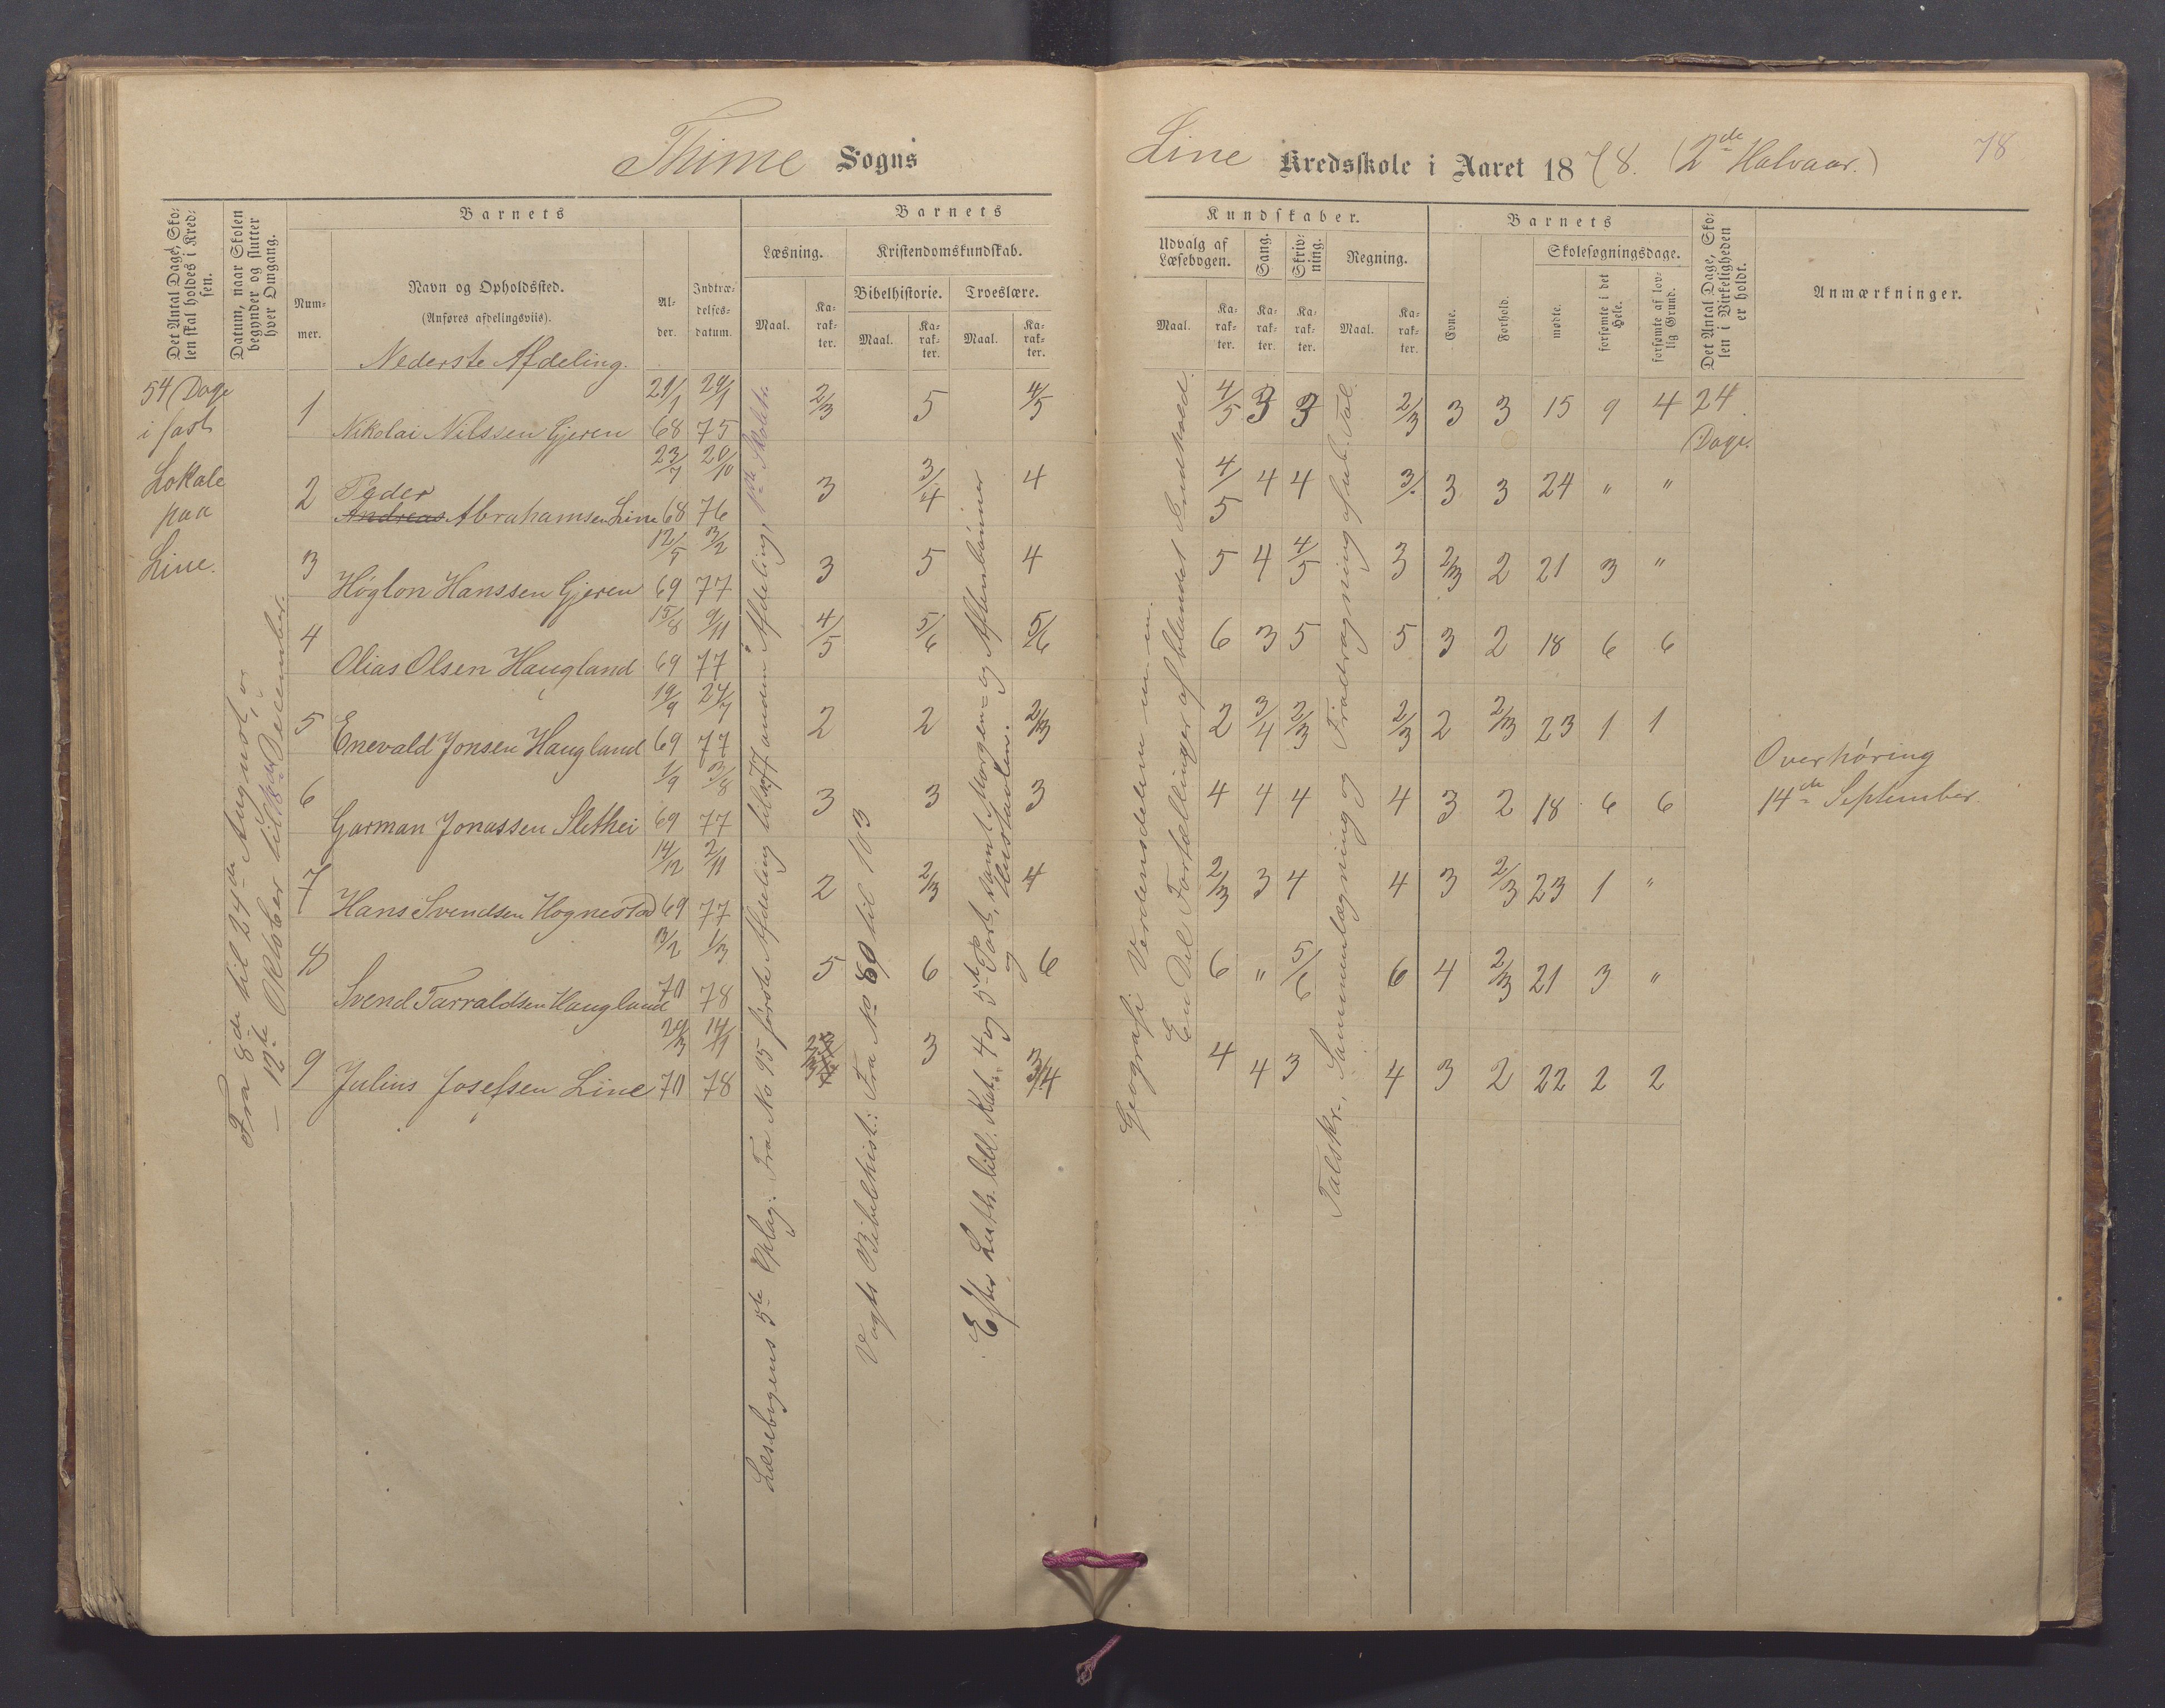 Thime Sogns
Line Kredsskole i Aaret 1878. (2de Halvaar.)
78
Det Antal Dage, Skolen skal holdes i Kredsen.
Datum, naar Skolen begynder og slutter hver Omgang.
Barnets
Nummer.
Navn og Opholdssted.
(Anføres afdelingsviis).
Nederste Afdeling.
Alder.
Indtrædelsesdatum.
Barnets
Læsning.
Maal.
Karakter.
Kristendomskundskab.
Bibelhistorie.
Maal.
Karakter.
Troeslære.
Maal.
Karakter.
Kundskaber.
Udvalg af Læsebogen.
Maal.
Karakter.
Sang.
Karakter.
Skrivning.
Karakter.
Regning.
Maal.
Karakter.
Barnets
Evne.
Forhold.
Skolesøgningsdage.
mødte.
forsømte i det Hele.
forsømte af lovlig Grund.
Det Antal Dage, Skolen i Virkeligheden er holdt.
Anmærkninger.
54 Dage
i fast
Lokale
paa
Line.
Fra 8de til 24de August, og
— 12te Oktober til 18de December.
1 Nikolai Nilssen Gjeren 21/1 68 24/1 75 2/3 5 4/5 4/5 3 3 2/3 3 3 15 9 4 24 Dage.
2 Peder Andreas Abrahamsen Line 23/7 68 20/10 76 3 3/4 4 4/5 4 4 3/. 3 3 24 " "
3 Høglon Hanssen Gjeren 12/5 69 3/2 77 3 5 4 5 4 4/5 3 2/3 2 21 3 "
4 Olias Olsen Haugland 15/8 69 9/11 77 4/5 5/6 5/6 6 3 5 5 3 2 18 6 6
5 Enevald Jonsen Haugland 19/9 69 24/7 77 2 2 2/3 2 3/4 2/3 2/3 2 2/3 23 1 1
6 Garman Jonassen Slethei 1/9 69 3/8 77 3 3 3 4 4 4 4 3 2 18 6 6
7 Hans Svendsen Hognestad 14/12 69 2/11 77 2 2/3 4 2/3 3 4 4 3 2/3 23 1 "
8 Svend Tarraldsen Haugland 3/2 70 1/3 78 5 6 6 6 " 5/6 6 4 2/3 21 3 "
9 Julius Josefsen Line 29/3 70 14/1 78 3 3/4 4 4 3 4 3 2 22 2 2
Læsebogens 5te Oplag: Fra No 95 første Afdeling til 77 anden Afdeling, 1ste Skoletr.
Vogts Bibelhist.: Fra No 69 til 103
Efter Luth. lill. Kat. 4 og 5te Part, samt Morgen= og Aftenbønner
og Hustavlen.
Geografi Verdensdelene m. m.
En Del Fortællinger af blandet Indhold.
Talskr., Sammenlægning og Fradragning af ub. Tal.
Overhøring
14de September.